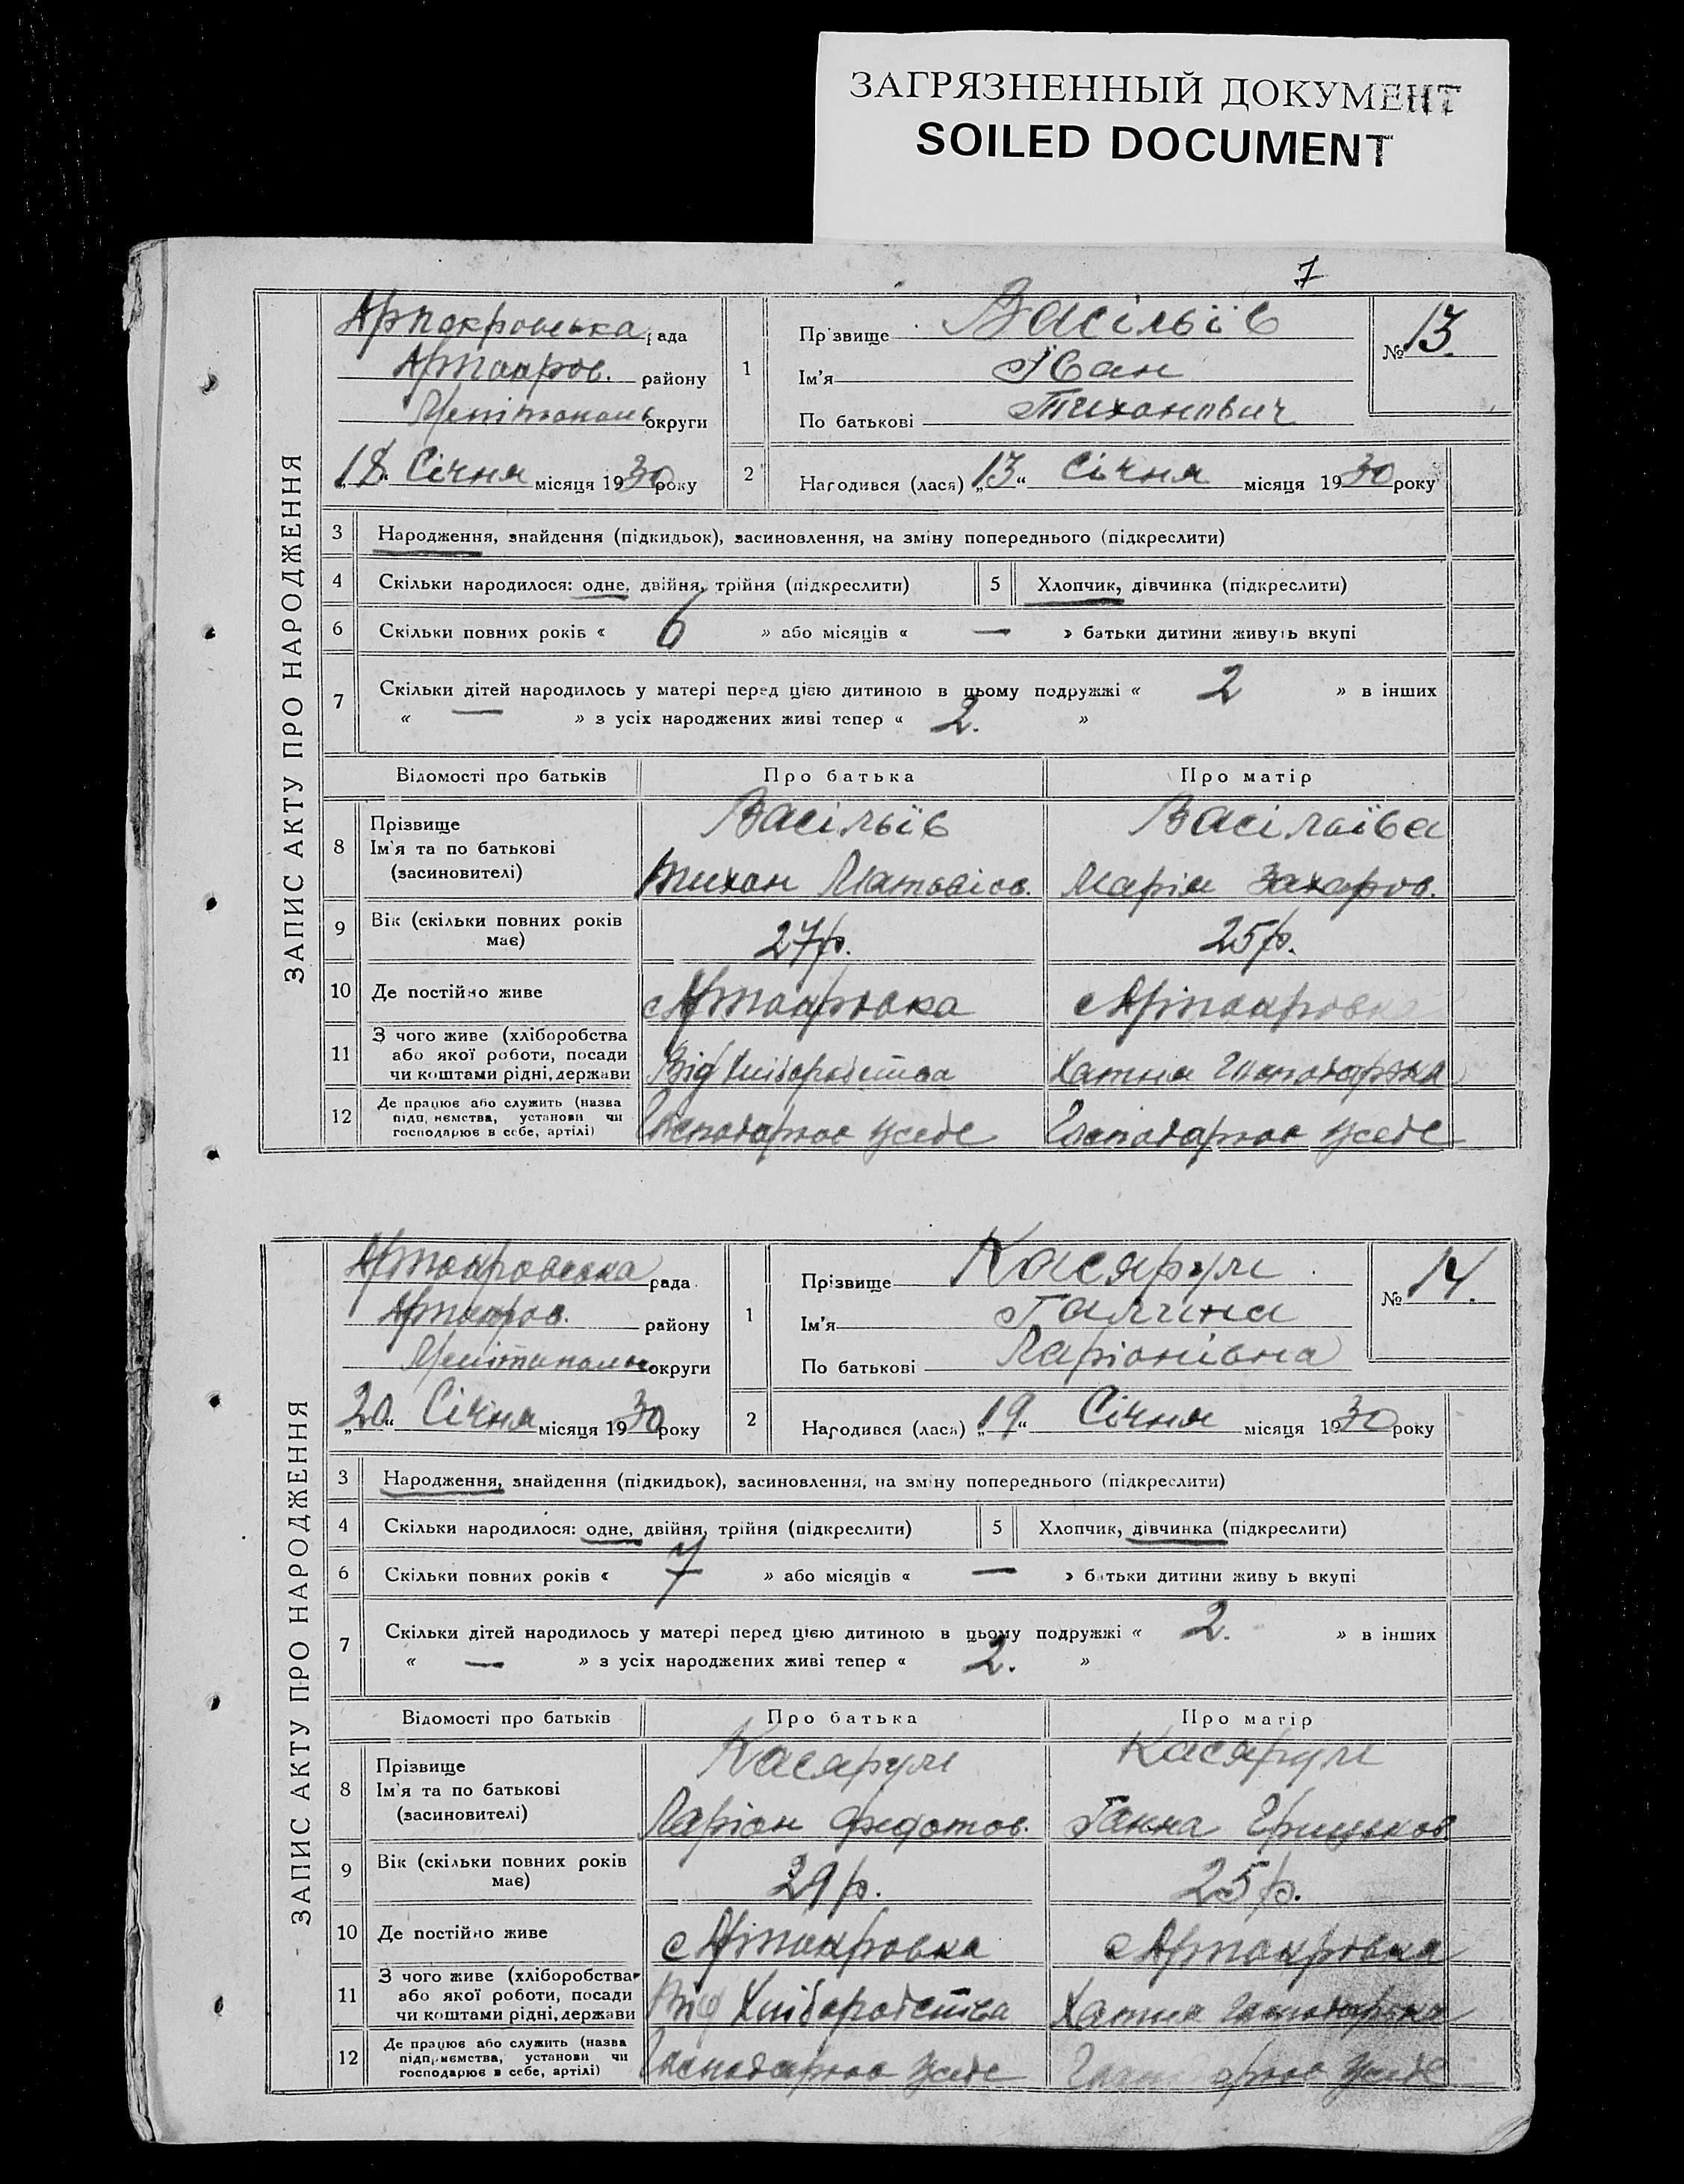 ЗАГРЯЗНЕННЫЙ ДОКУМЕНТ
SOILED DOCUMENT
7
ЗАПИС АКТУ ПРО НАРОДЖЕННЯ
рада
району
округи
18 Січня місяця 1930 року
1
Прізвище Васільїв
Ім'я Іван
По батькові Тиханович
№ 13.
2
Народився (лася) „13“ Січня місяця 1930 року
3 Народження, знайдення (підкидьок), засиновлення, на зміну попереднього (підкреслити)
4 Скільки народилося: одне, двійня, трійня (підкреслити) 5 Хлопчик, дівчинка (підкреслити)
6 Скільки повних років « 6 » або місяців « — » батьки дитини живуть вкупі
7 Скільки дітей народилось у матері перед цією дитиною в цьому подружжі « 2 » в інших
« — » з усіх народжених живі тепер « 2. »
Відомості про батьків Про батька Про матір
8 Прізвище Васільїв Васілаїва
Ім'я та по батькові
(засиновителі) Тихан Марія Захаров.
9 Вік (скільки повних років
має) 27 р. 25 р.
10 Де постійно живе
11 З чого живе (хліборобства
або якої роботи, посади
чи коштами рідні, держави Від Хліборобства Хатня
12 Де працює або служить (назва
підприємства, установи чи
господарює в себе, артілі) Господарює усебе Господарює усебе
ЗАПИС АКТУ ПРО НАРОДЖЕННЯ
рада
району
округи
„20“ Січня місяця 1930 року
1
Прізвище Касярум
Ім'я Галина
По батькові Ларіонівна
№ 14.
2
Народився (лася) „19“ Січня місяця 1930 року
3 Народження, знайдення (підкидьок), засиновлення, на зміну попереднього (підкреслити)
4 Скільки народилося: одне, двійня, трійня (підкреслити) 5 Хлопчик, дівчинка (підкреслити)
6 Скільки повних років « 7 » або місяців « — » батьки дитини живуь вкупі
7 Скільки дітей народилось у матері перед цією дитиною в цьому подружжі « 2. » в інших
« — » з усіх народжених живі тепер « 2. »
Відомості про батьків Про батька Про матір
8 Прізвище Касярум Касярум
Ім'я та по батькові
(засиновителі) Ларіон Федотов. Ганна Грицьков.
9 Вік (скільки повних років
має) 29 р. 25 р.
10 Де постійно живе
11 З чого живе (хліборобства
або якої роботи, посади
чи коштами рідні, держави Від Хліборобства Хатня
12 Де працює або служить (назва
підприємства, установи чи
господарює в себе, артілі) Господарює усебе усебе